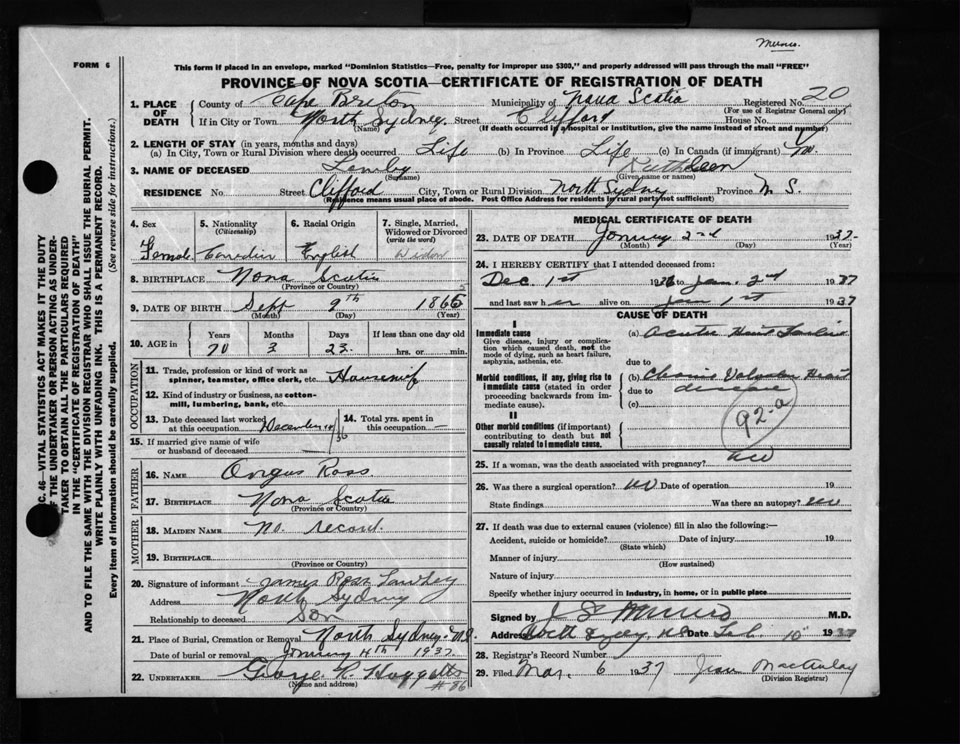 Munro.
FORM 6
This form if placed in an envelope, marked "Dominion Statistics—Free, penalty for improper use $300," and properly addressed will pass through the mail "FREE"
PROVINCE OF NOVA SCOTIA—CERTIFICATE OF REGISTRATION OF DEATH
1. PLACE OF DEATH County of Cape Breton Municipality of Nova Scotia Registered No. 20
(For use of Registrar General only)
If in City or Town North Sydney. Street Clifford House No.
(Name) (If death occurred in a hospital or institution, give the name instead of street and number)
2. LENGTH OF STAY (in years, months and days)
(a) In City, Town or Rural Division where death occurred Life (b) In Province Life (c) In Canada (if immigrant)
3. NAME OF DECEASED Kathleen
(Surname) (Given name or names)
RESIDENCE No. Street Clifford City, Town or Rural Division North Sydney Province N S.
(Residence means usual place of abode. Post Office Address for residents in rural parts not sufficient)
4. Sex 5. Nationality (Citizenship) 6. Racial Origin 7. Single, Married, Widowed or Divorced (write the word)
Female Canadian English Widow
8. BIRTHPLACE Nova Scotia
(Province or Country)
9. DATE OF BIRTH Sept 9th 1866
(Month) (Day) (Year)
10. AGE in Years Months Days If less than one day old
70 3 23 hrs. or min.
OCCUPATION
11. Trade, profession or kind of work as spinner, teamster, office clerk, etc. Housewife
12. Kind of industry or business, as cotton-mill, lumbering, bank, etc.
13. Date deceased last worked at this occupation December 36 14. Total yrs. spent in this occupation —
15. If married give name of wife or husband of deceased
FATHER
16. NAME Angus Ross
17. BIRTHPLACE Nova Scotia
(Province or Country)
MOTHER
18. MAIDEN NAME No. record.
19. BIRTHPLACE
(Province or Country)
20. Signature of informant James Ross
Address North Sydney
Relationship to deceased Son
21. Place of Burial, Cremation or Removal North Sydney N.S.
Date of burial or removal January 4th 1937
22. UNDERTAKER George R.
(Name and address) # 86
MEDICAL CERTIFICATE OF DEATH
23. DATE OF DEATH January 2nd 1937.
(Month) (Day) (Year)
24. I HEREBY CERTIFY that I attended deceased from:
Dec. 1st 1936 to Jan. 2nd 1937
and last saw her alive on Jan 1st 1937
CAUSE OF DEATH
I
Immediate cause (a) Acute Heart Failure
Give disease, injury or complication which caused death, not the mode of dying, such as heart failure, asphyxia, asthenia, etc.
due to
Morbid conditions, if any, giving rise to immediate cause (stated in order proceeding backwards from immediate cause). (b) Chronic Valvular Heart
due to disease
(c)
92-a
II
Other morbid conditions (if important) contributing to death but not causally related to immediate cause.
25. If a woman, was the death associated with pregnancy? no
26. Was there a surgical operation? no Date of operation 19
State findings Was there an autopsy? no
27. If death was due to external causes (violence) fill in also the following:—
Accident, suicide or homicide? Date of injury 19
(State which)
Manner of injury
(How sustained)
Nature of injury
Specify whether injury occurred in industry, in home, or in public place
Signed by J S Munro M.D.
Address N.S. Date Feb. 10 1937
28. Registrar's Record Number
29. Filed Mar. 6 1937 Jean MacAulay
(Division Registrar)
C. 46—VITAL STATISTICS ACT MAKES IT THE DUTY
OF THE UNDERTAKER OR PERSON ACTING AS UNDER-
TAKER TO OBTAIN ALL THE PARTICULARS REQUIRED
IN THE "CERTIFICATE OF REGISTRATION OF DEATH"
AND TO FILE THE SAME WITH THE DIVISION REGISTRAR WHO SHALL ISSUE THE BURIAL PERMIT.
WRITE PLAINLY WITH UNFADING INK. THIS IS A PERMANENT RECORD.
Every item of information should be carefully supplied. (See reverse side for instructions.)